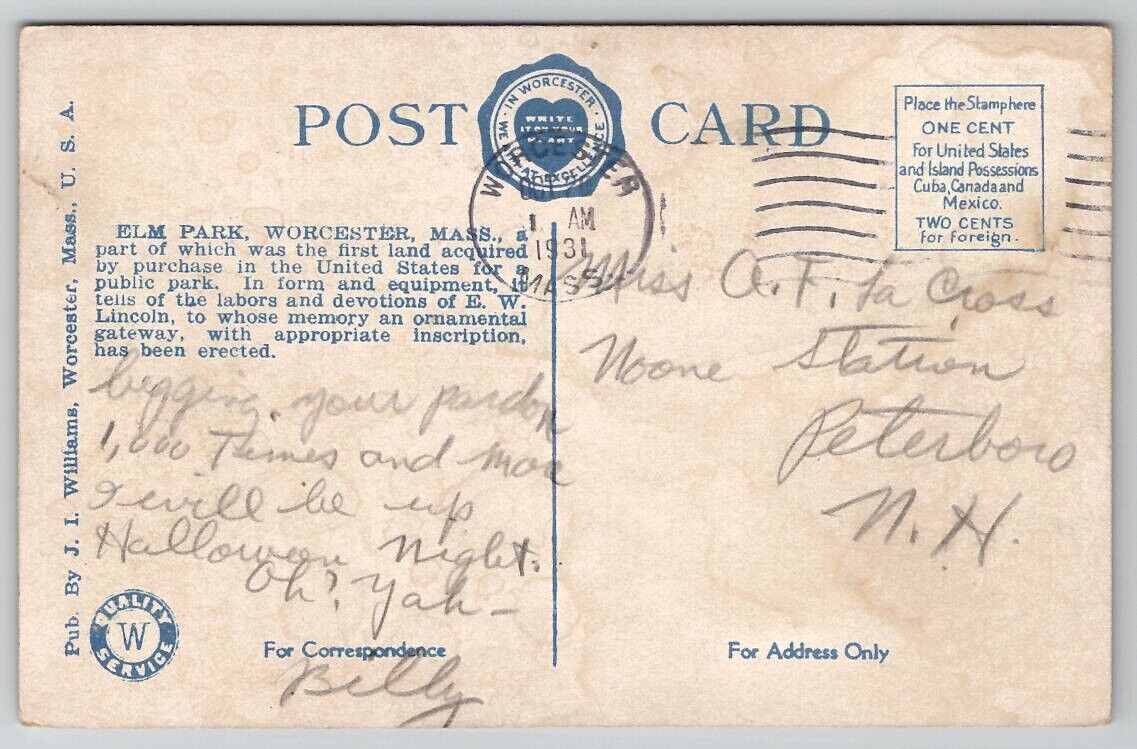 POST CARD
IN WORCESTER
WRITE
IT ON YOUR
HEART
EXCELLENCE
WORCESTER
OCT
1 AM
1931
MASS.
Place the Stamp here
ONE CENT
For United States
and Island Possessions
Cuba, Canada and
Mexico.
TWO CENTS
for foreign.
Pub. By J. I. Williams, Worcester, Mass., U. S. A.
ELM PARK, WORCESTER, MASS., a
part of which was the first land acquired
by purchase in the United States for a
public park. In form and equipment, it
tells of the labors and devotions of E. W.
Lincoln, to whose memory an ornamental
gateway, with appropriate inscription,
has been erected.
begging your pardon
1,000 Times and more
I will be up
Halloween Night.
Oh! Yah -
Billy
Miss A. F. La Cross
Noone Station
Peterboro
N. H.
QUALITY
W
SERVICE
For Correspondence
For Address Only